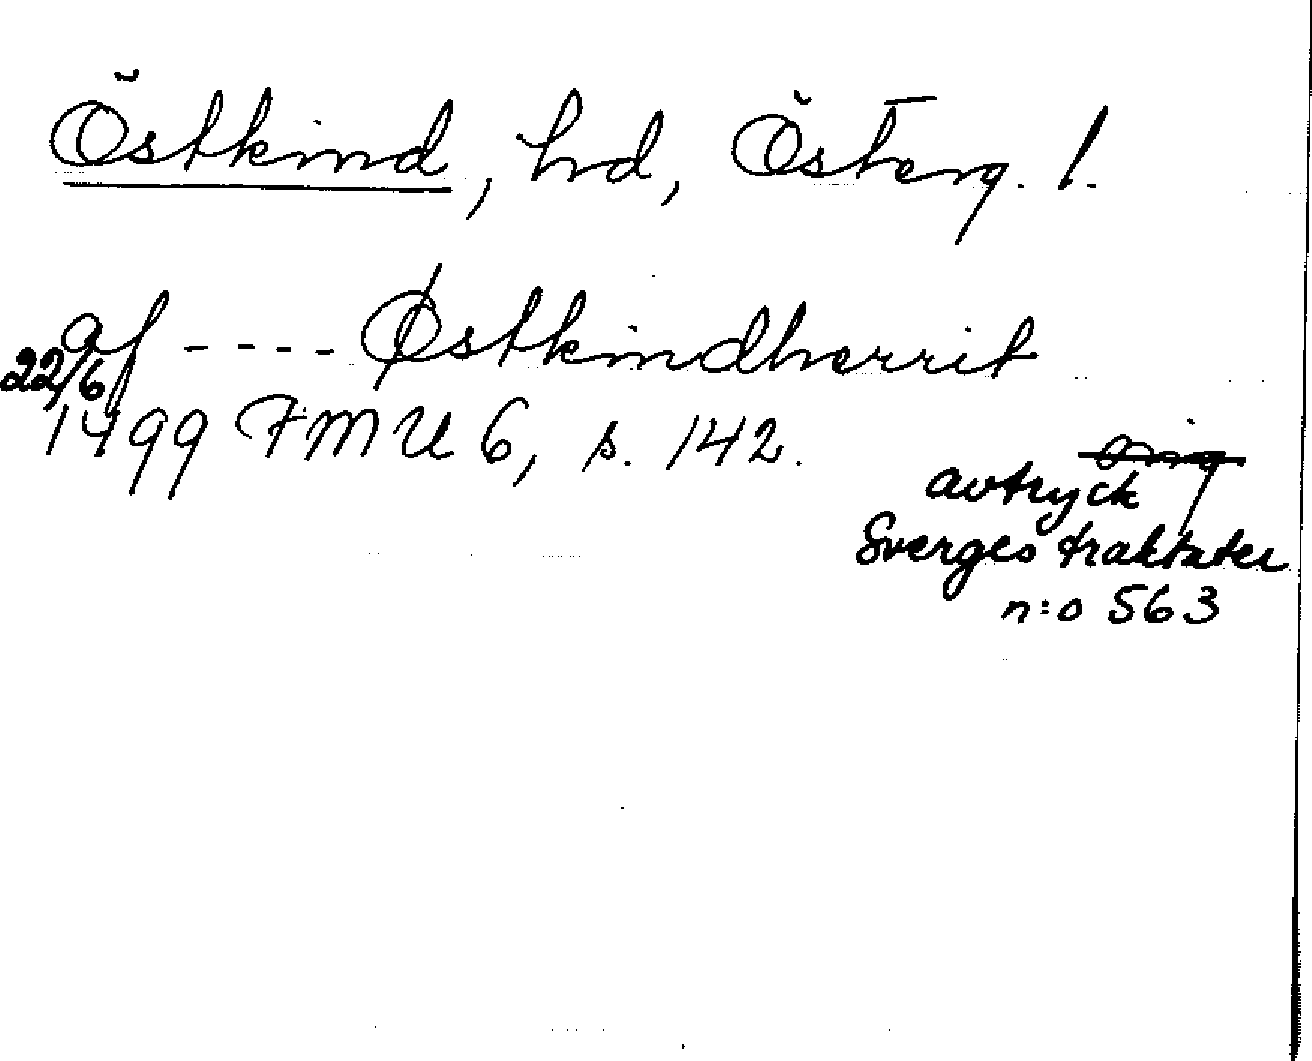 Östkind, hd, Österg. l.
af ---- Østkindherrit
22/6
1499 FMU 6, s. 142.
avtryck
Sverges traktater
n:o 563